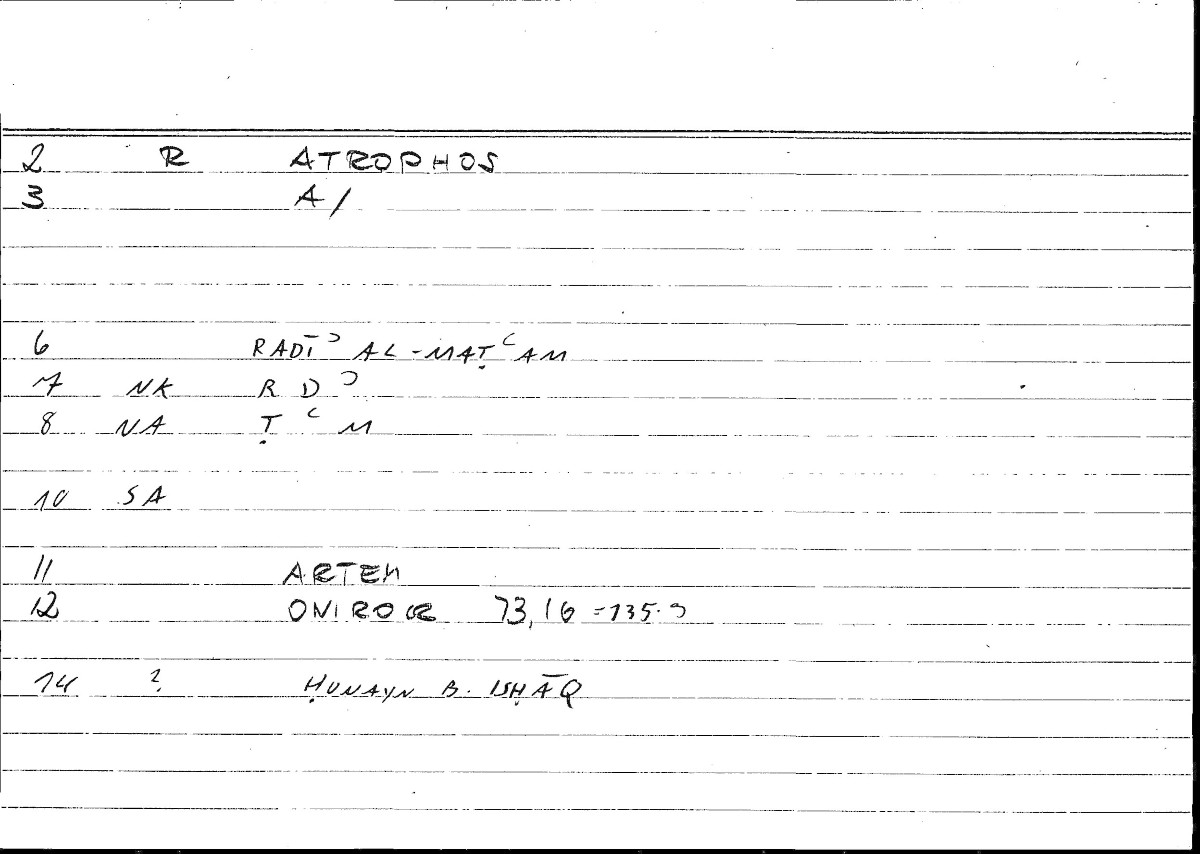 2 R ATROPHOS
3 A/
6 RADĪʾ AL-MAṬʿAM
7 NK R D ʾ
8 NA Ṭ ʿ M
10 SA
11 ARTEM
12 ONIROCR 73,16 = 135.9
14 ? ḤUNAYN B. ISḤĀQ